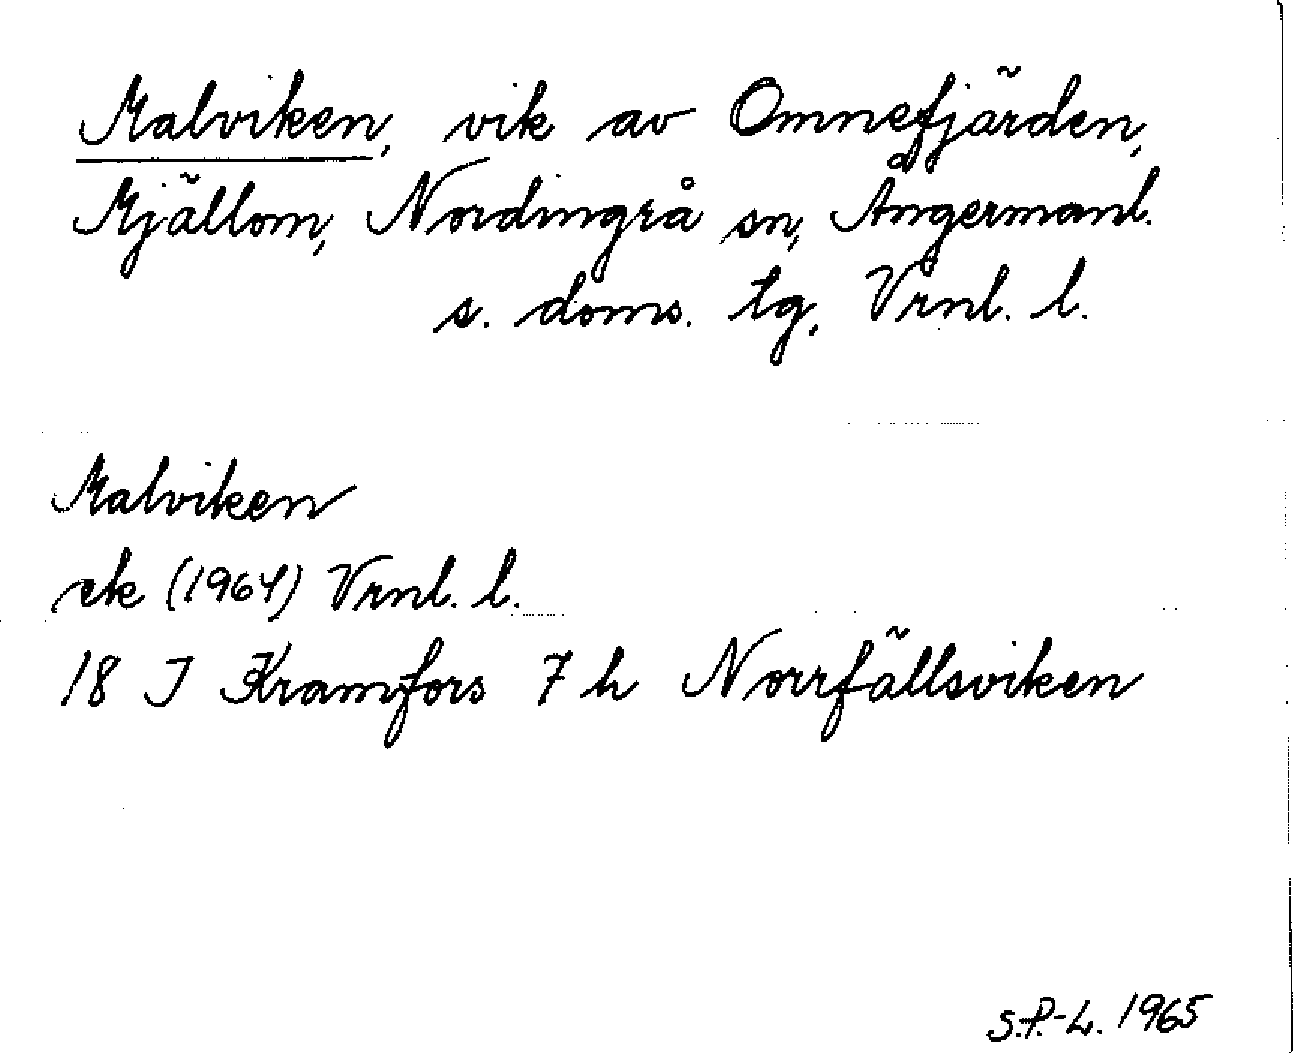 Malviken, vik av Omnefjärden,
Mjällom, Nordingrå sn, Ångermanl.
s. doms. tg, Vrnl. l.
Malviken
ek (1964) Vrnl. l.
18 I Kramfors 7 h Norrfällsviken
S.P.-L. 1965